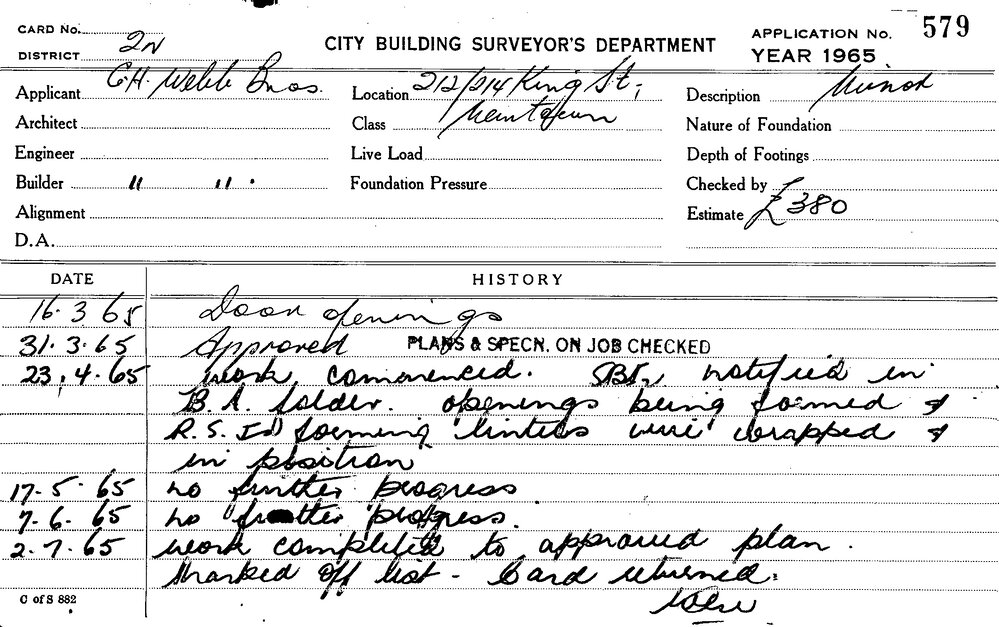 CARD No.
DISTRICT 2N
CITY BUILDING SURVEYOR'S DEPARTMENT
APPLICATION No. 579
YEAR 1965
Applicant C.H. Webb Bros. Location 212/214 King St, Description Minor
Newtown
Architect Class Nature of Foundation
Engineer Live Load Depth of Footings
Builder " " . Foundation Pressure Checked by
Alignment Estimate £380
D.A.
DATE HISTORY
16.3 65 Door openings
31.3.65 Approved PLANS & SPECN. ON JOB CHECKED
23.4.65 work commenced. notified in
B.A. folder. openings being formed &
R.S.Js forming lintels were wrapped &
in position
17.5.65 no further progress
7.6.65 no further progress.
2.7.65 work completed to approved plan.
Marked off list - Card returned.
C of S 882